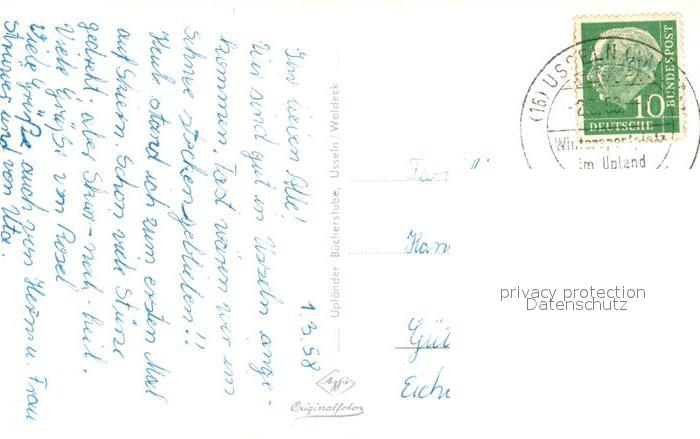 1.3.58
Ihr lieben Alle!
Wir sind gut in Usseln ange-
kommen. Fast wären wir im
Schnee stecken geblieben!!
Heut stand ich zum ersten Mal
auf Skiern. Schon viele Stürze
gedreht. aber Skier - noch - heil.
Viele Grüße von Rosel
Viele Grüße auch von Herrn u. Frau
und von Uta.
Upländer Bücherstube, Usseln / Waldeck
Agfa
Originalfoto
Fam
Han
Güt
Eiche
(16) USSELN
Wintersportplatz
im Upland
10
DEUTSCHE
BUNDESPOST
privacy protection
Datenschutz